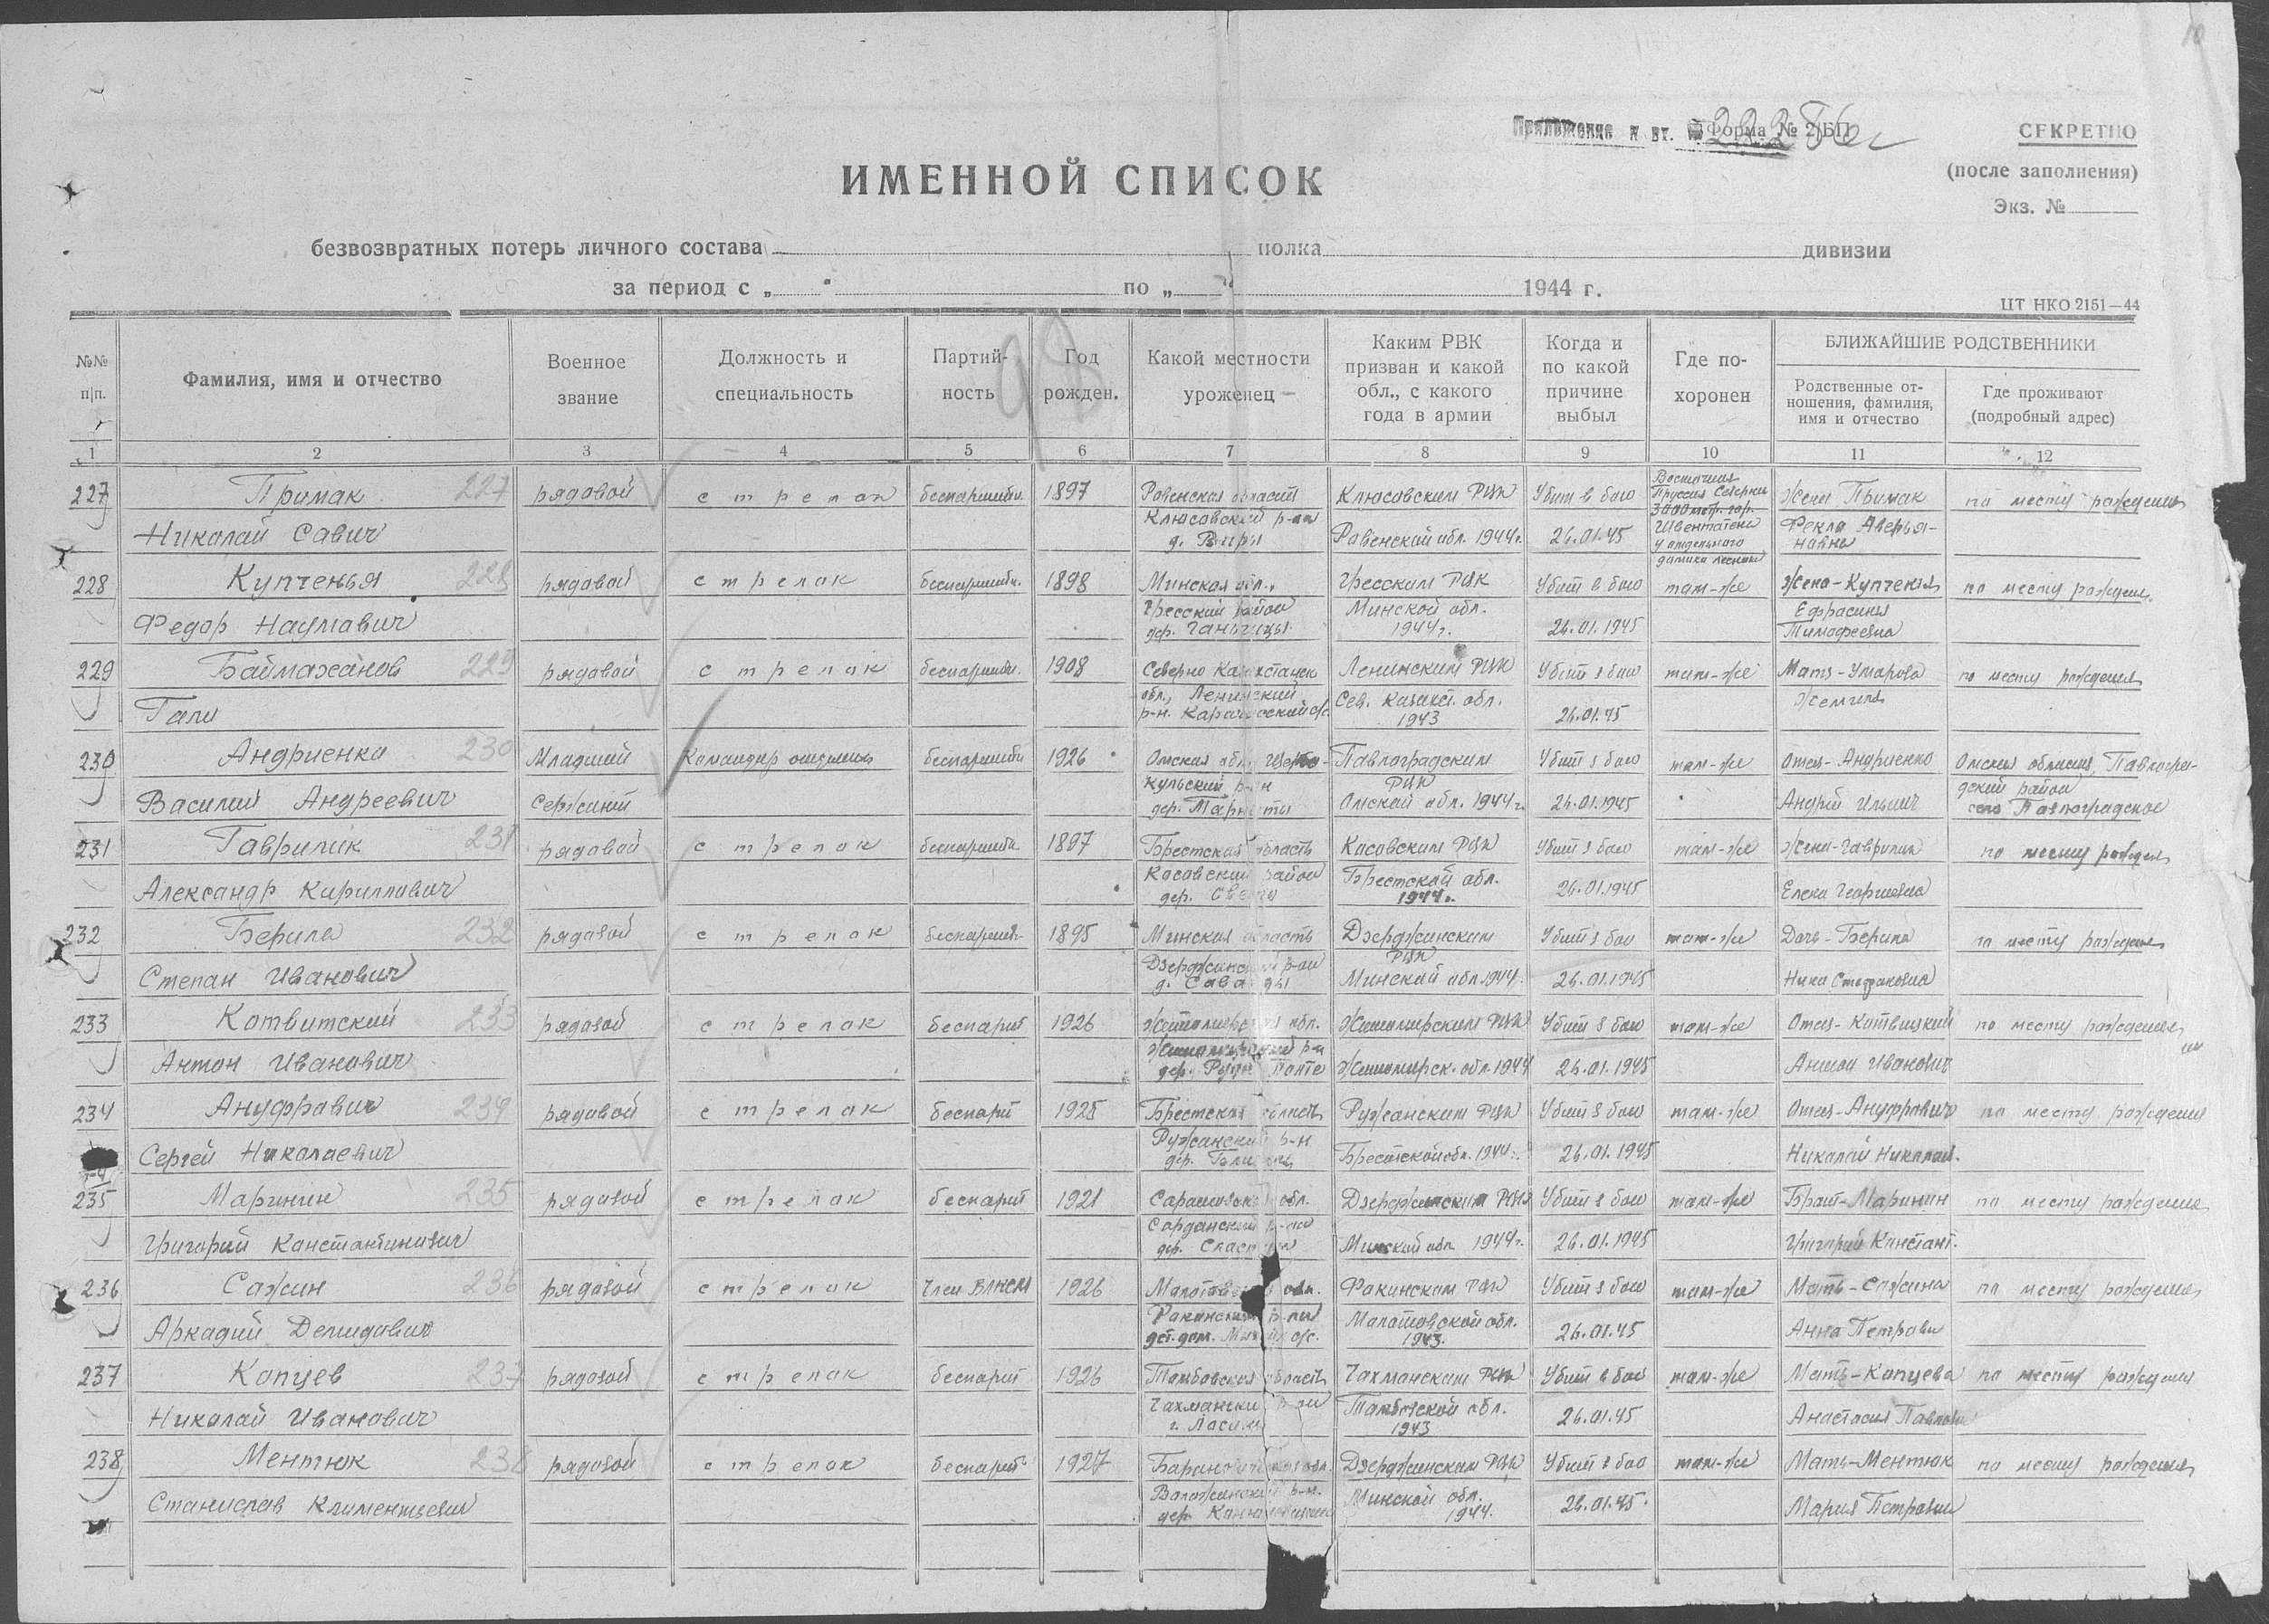 Приложение к вх. № 22256с
Форма № 2/БП
СЕКРЕТНО
(после заполнения)
Экз. №
ИМЕННОЙ СПИСОК
безвозвратных потерь личного состава полка дивизии
за период с „ “ по „ “ 1944 г.
ЦТ НКО 2151—44
98
№№ п|п.
Фамилия, имя и отчество
Военное звание
Должность и специальность
Партий-ность
Год рожден.
Какой местности уроженец
Каким РВК призван и какой обл., с какого года в армии
Когда и по какой причине выбыл
Где по-хоронен
БЛИЖАЙШИЕ РОДСТВЕННИКИ
Родственные от-ношения, фамилия, имя и отчество
Где проживают (подробный адрес)
1 2 3 4 5 6 7 8 9 10 11 12
227 Примак 227 рядовой стрелок беспартийн. 1897 Ровенская область Клюсовским РВК Убит в бою Восточная Пруссия Северн. 3000 мотр. гор. жена Примак по месту рождения
Николай Савич Клюсовский р-он д. Виры Ровенской обл. 1944г. 26.01.45 у отдельного домика лесника Фекла Аверья-новна
228 Купченья 228 рядовой стрелок беспартийн. 1898 Минская обл., Гресским РВК Убит в бою там-же жена-Купченья по месту рожден.
Федор Наумович Гресский район дер. Минской обл. 1944г. 26.01.1945 Ефрасиния Тимофеевна
229 Баймажанов 229 рядовой стрелок беспартийн. 1908 Северо Казахстанск Ленинским РВК Убит в бою там-же Мать-Умарова по месту рождения
Гали обл., Ленинский р-н. Сев. Казахст. обл. 1943 26.01.45
230 Андриенко 230 Младший Командир отделения беспартийн 1926 Омская обл. Павлоградским РВК Убит в бою там-же Отец-Андриенко Омская область, Павлогра-
Василий Андреевич сержант кульский р-н дер. Омской обл. 1944г. 26.01.1945 Андрей Ильич дский район село Павлоградское
231 Гаврилик 231 рядовой стрелок беспартийн 1897 Брестская область Косовским РВК Убит в бою там-же жена-Гаврилик по месту рожден
Александр Кириллович Косовский район дер. Брестской обл. 1944г. 26.01.1945 Елена Георгиевна
232 Берила 232 рядовой стрелок беспартийн 1895 Минская область Дзержинским РВК Убит в бою там-же Дочь-Берила по месту рожден
Степан Иванович Дзержинский р-он д. Минской обл 1944 26.01.1945 Нина Степановна
233 Котвитский 233 рядовой стрелок беспарт 1926 Житомирская обл. Житомирским РВК Убит в бою там-же Отец-Котвицкий по месту рождения
Антон Иванович Житомирский р-н дер. Житомирск. обл. 1944 26.01.1945 Антон Иванович
234 Ануфравич 234 рядовой стрелок беспарт 1925 Брестская область Ружанским РВК Убит в бою там-же Отец-Ануфравич по месту рождения
Сергей Николаевич Ружанский р-н дер. Брестской обл. 1944г. 26.01.1945 Николай Николаев.
235 Маринин 235 рядовой стрелок беспарт 1921 обл. Дзержинским РВК Убит в бою там-же Брат-Маринин по месту рождения
Григорий Константинович р-он дер. Минской обл 1944г. 26.01.1945 Григорий Констант.
236 Сажин 236 рядовой стрелок Член ВЛКСМ 1926 Молотовская обл. Фокинским РВК Убит в бою там-же Мать-Сажина по месту рождения
Аркадий Демидович Фокинский р-он дет. дом. с/с. Молотовской обл. 1943. 26.01.45 Анна Петровн
237 Копцев 237 рядовой стрелок беспарт 1926 Тамбовская область РВК Убит в бою там-же Мать-Копцева по месту рождения
Николай Иванович р-он Тамбовской обл. 1943 26.01.45 Анастасия Павловн
238 Ментюк 238 рядовой стрелок беспарт 1927 обл. Дзержинским РВК Убит в бою там-же Мать-Ментюк по месту рождения
Станислав Климентьевич Воложинский р-н. дер. Минской обл. 1944. 26.01.45. Мария Петровна